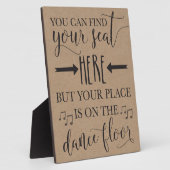 YOU CAN FIND
your seat
HERE
BUT YOUR PLACE
IS ON THE
dance floor